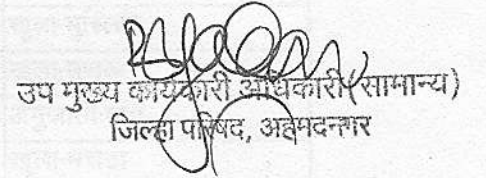 उप मुख्य कार्यकारी अधिकारी (सामान्य)
जिल्हा परिषद, अहमदनगर